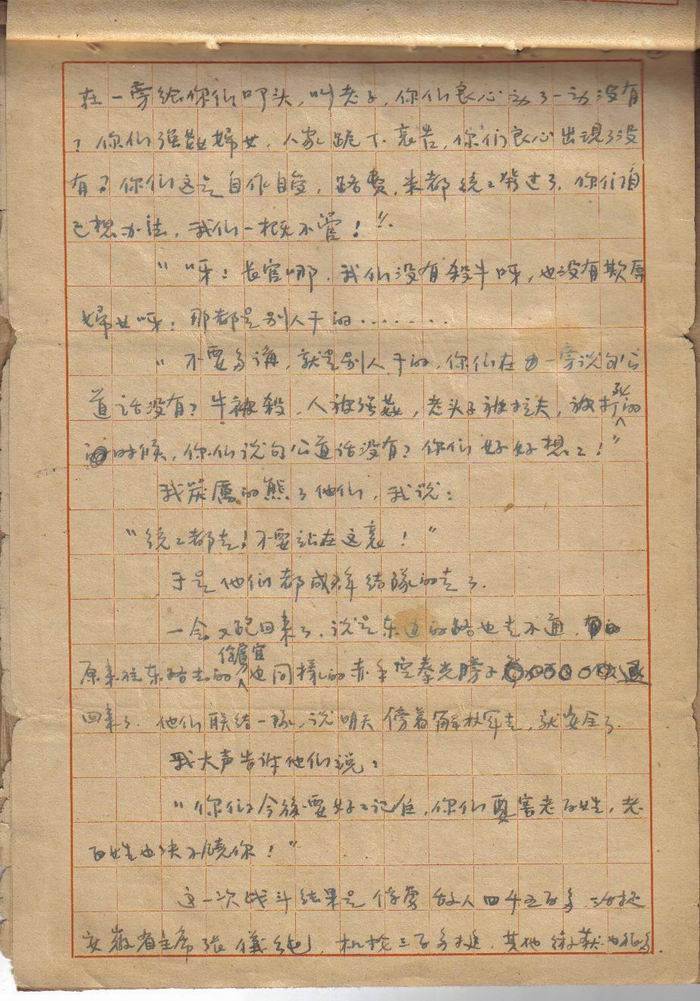 在一旁给你们叩头，叫老子，你们良心动了一动没有
？你们强姦婦女，人家跪下哀告，你们良心出现了没
有？你们这是自作自受，路费，米都统々發过了，你们自
已想办法，我们一概不管！”
“呀！长官哪，我们没有殺牛呀，也没有欺辱
婦女呀！那都是别人干的.......
“不要多講，就是别人干的，你们在一旁说句公
道话没有？牛被殺，人被强姦，老头子被拉夫，被打死的
时候，你们说句公道话没有？你们好好想々！”
我嚴厲的熊了他们，我说：
“统々都走！不要站在这裏！”
于是他们都成群结隊的走了。
一会又跑回来了，说是东边的路也走不通，
原来往东路去的俘虏官也同樣的赤手空拳光膀子退
回来了。他们联结一起，说明天傍着解放军走，就安全了。
我大声告诉他们说：
“你们今後要好々记住，你们要害老百姓，老
百姓也决不饒你！”
这一次战斗结果是俘虏敌人四千五百多，活捉
安徽省主席張義纯，机枪三百多挺，其他缴获也很多。